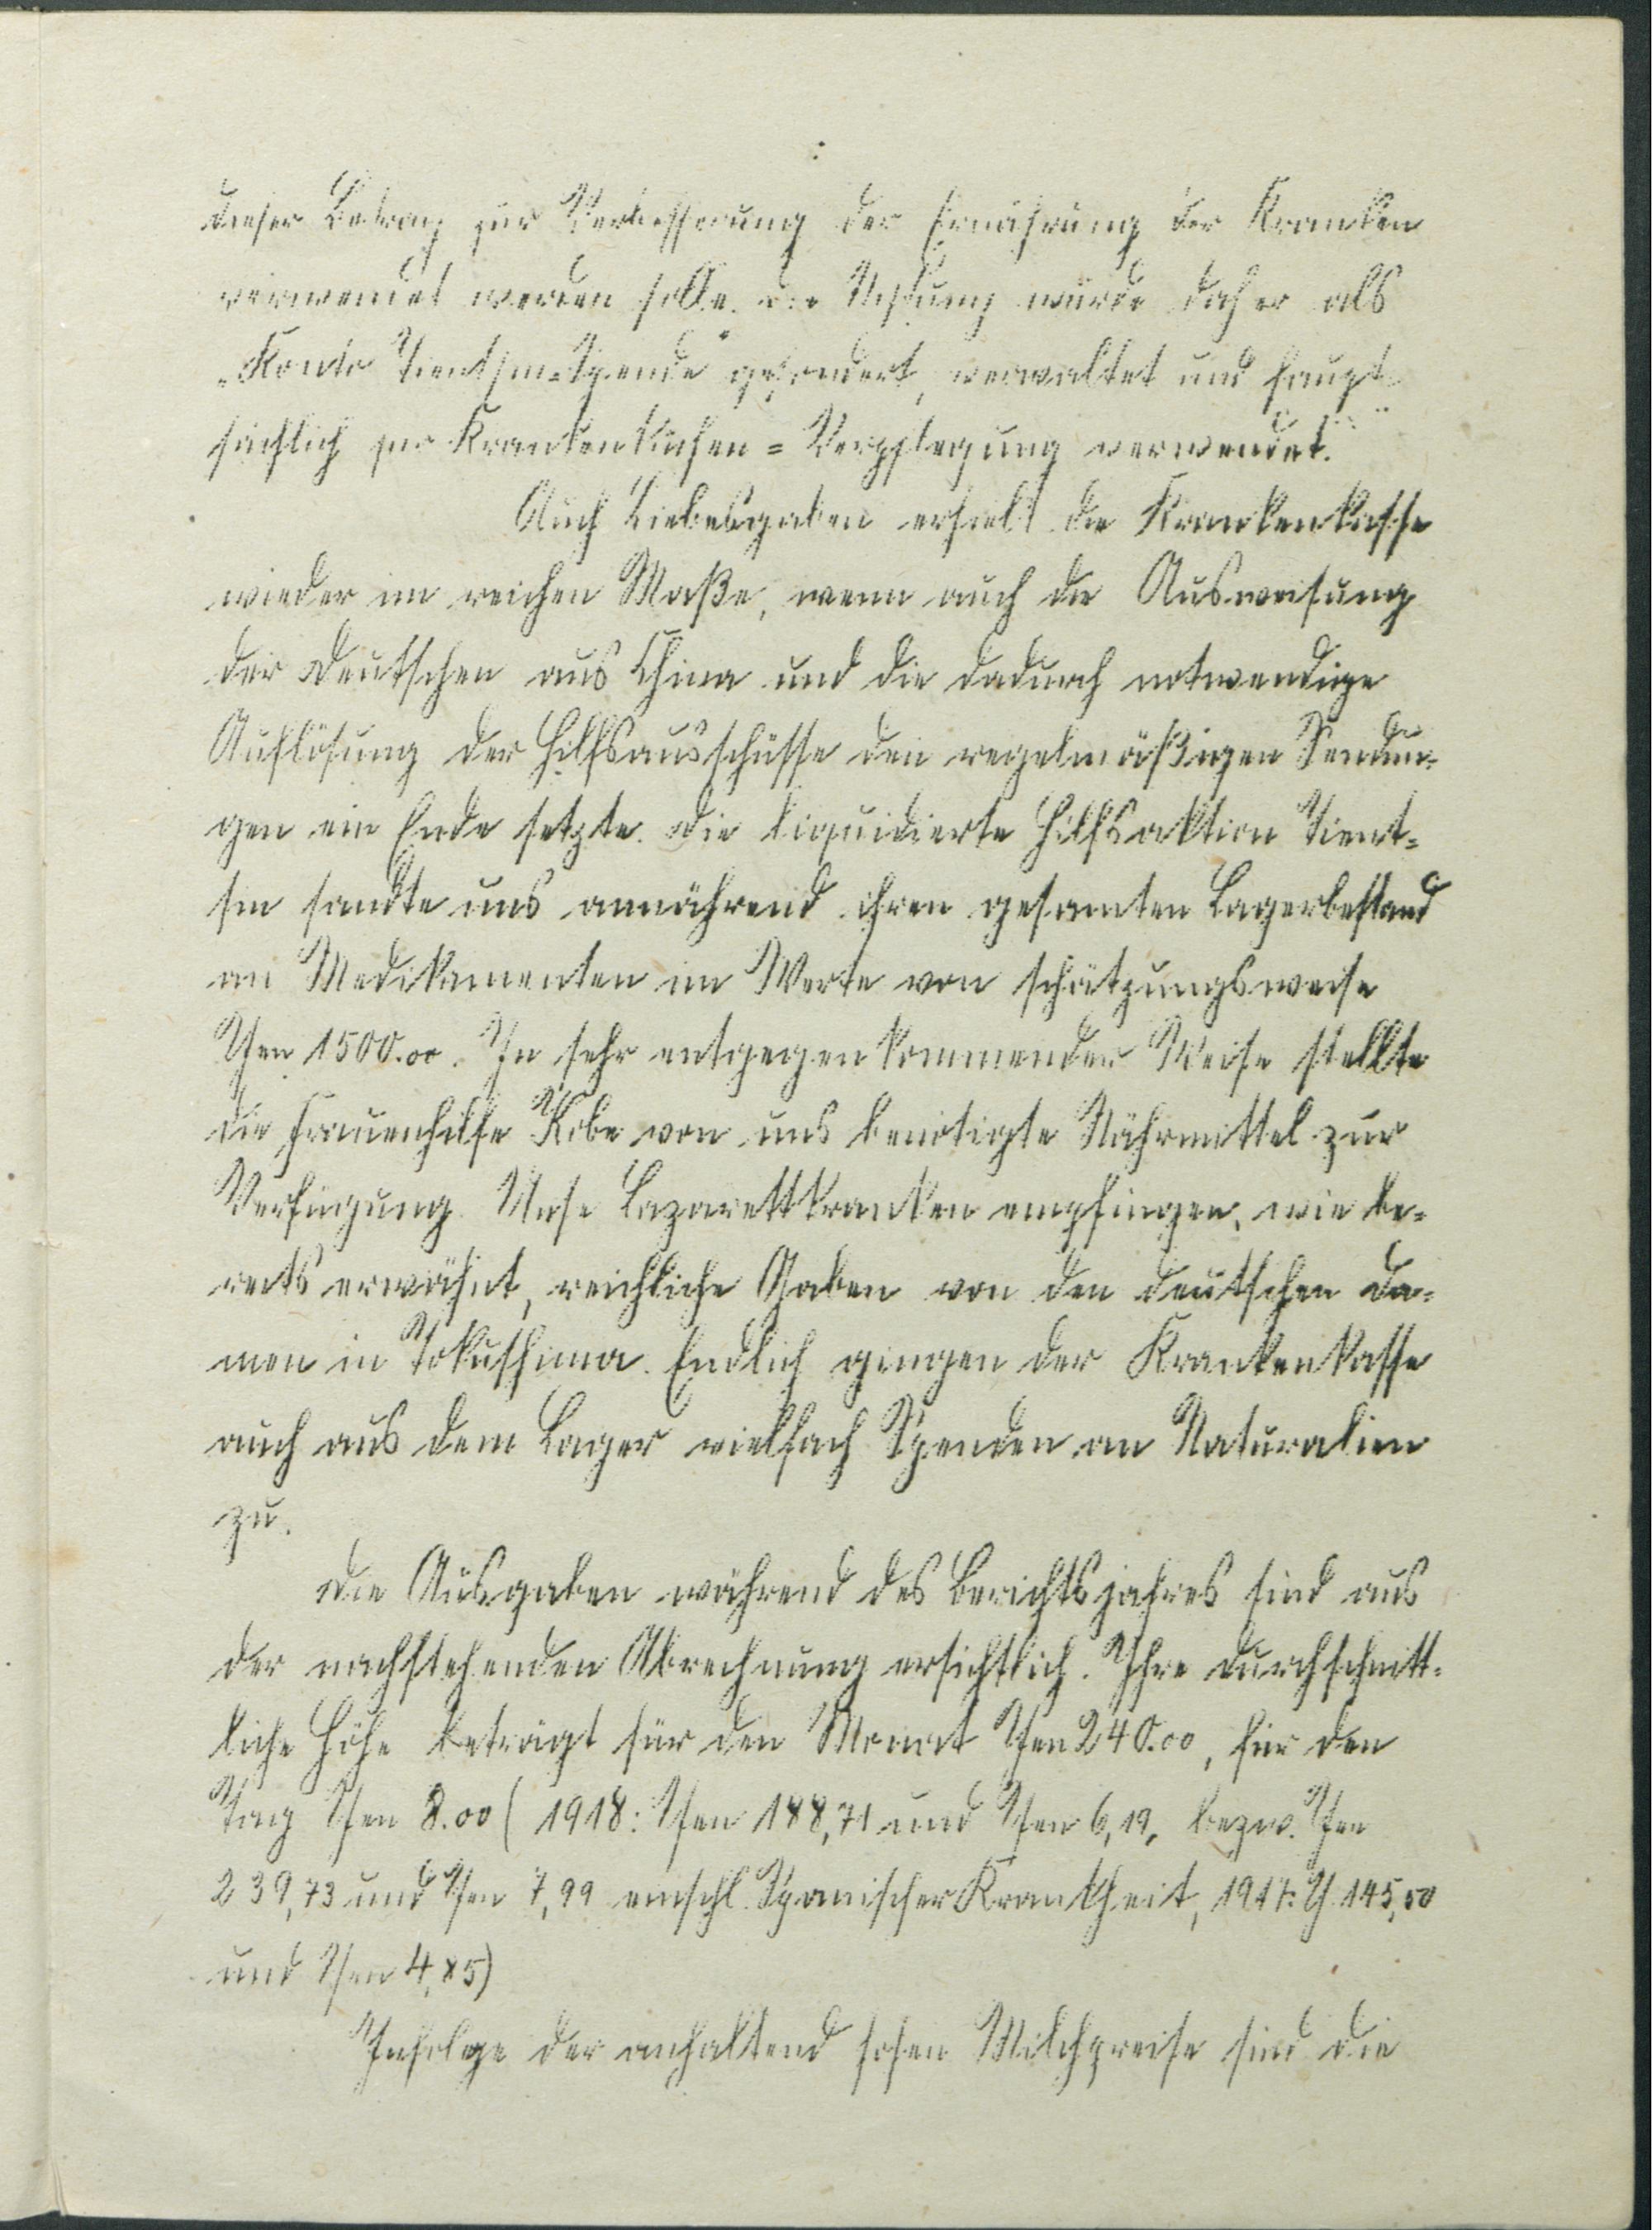 dieser Betrag zur Verbesserung der Ernährung der Kranken
verwendet werden solle. die Stiftung wurde daher als
„Konto Tientsin-Spende" gesondert, verwaltet und haupt-
sächlich zur Krankenküchen-Verpflegung verwendet.
Auch Liebesgaben erhielt die Krankenkasse
wieder im reichen Maße, wenn auch die Ausweisung
der Deutschen aus China und die dadurch notwendige
Auflösung der Hilfsausschüsse den regelmäßigen Sendun-
gen ein Ende setzte. Die liquidierte Hilfsaktion Tient-
sin sandte uns annährend ihren gesamten Lagerbestand
an Medikamenten im Werte von schätzungsweise
Yen 1500.00. In sehr entgegenkommender Weise stellte
die Frauenhilfe Kobe von uns benötigte Nährmittel zur
Verfügung. Unse Lazarettkranken empfingen, wie be-
reits erwähnt, reichliche Gaben von den deutschen Da-
men in Tokushima. Endlich gingen der Krankenkasse
auch aus dem Lager vielfach Spenden an Naturalien
zu.
Die Ausgaben während des Berichtsjahres sind aus
der nachstehenden Abrechnung ersichtlich. Ihre durchschnitt-
liche Höhe beträgt für den Monat Yen 240.00, für den
Tag Yen 8.00 (1918: Yen 188,71 und Yen 6,19, bezw. Yen
239,73 und Yen 7,99 einschl. Spanischer Krankheit, 1917: Y. 145,50
und Yen 4,85)
Infolge der anhaltend hohen Milchpreise sind die